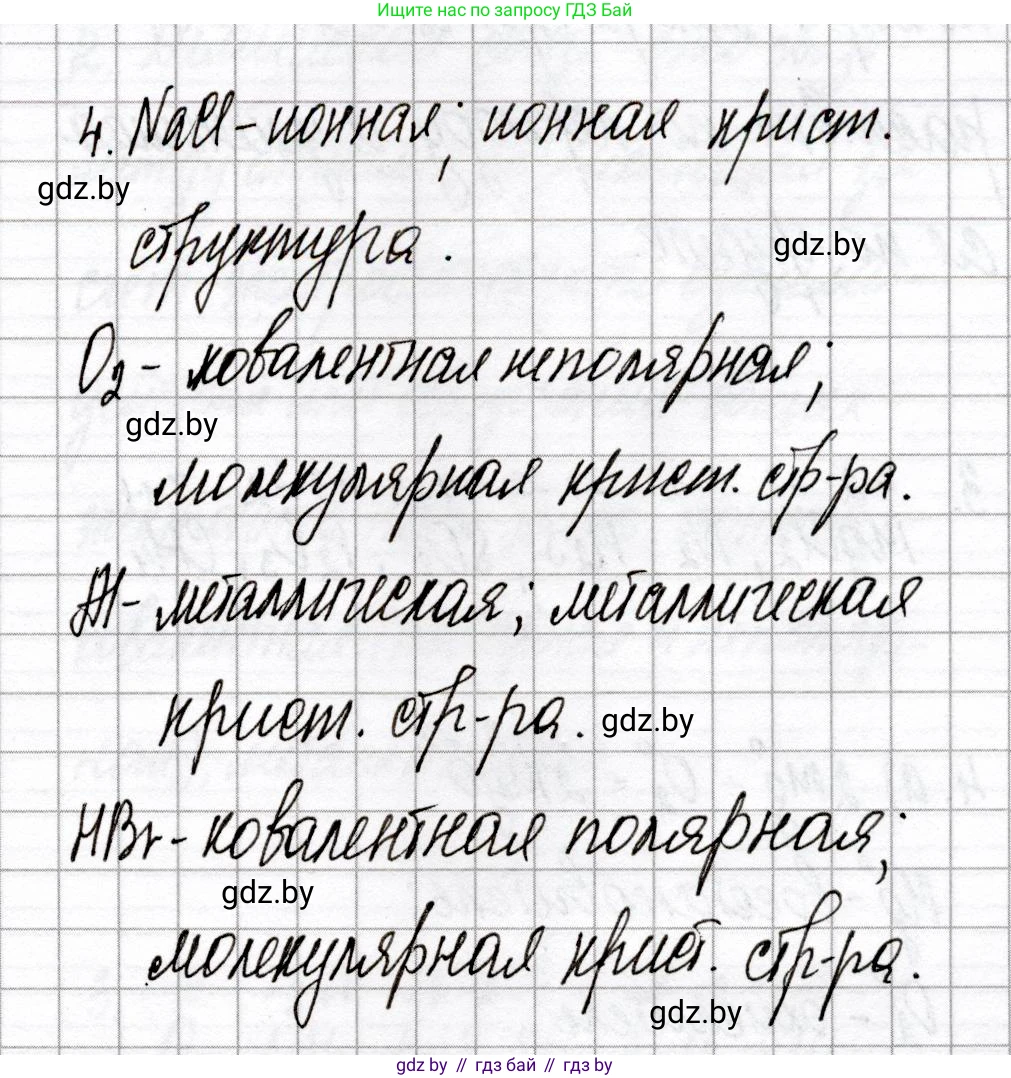 Ищите нас по запросу ГДЗ Бай
4. NaCl - ионная; ионная крист.
gdz.by
структура.
gdz.by
O₂ - ковалентная неполярная;
gdz.by
молекулярная крист. стр-ра.
Al - металлическая; металлическая
крист. стр-ра.
gdz.by
HBr - ковалентная полярная;
gdz.by
молекулярная крист. стр-ра.
gdz.by
gdz.by // гдз бай // gdz.by